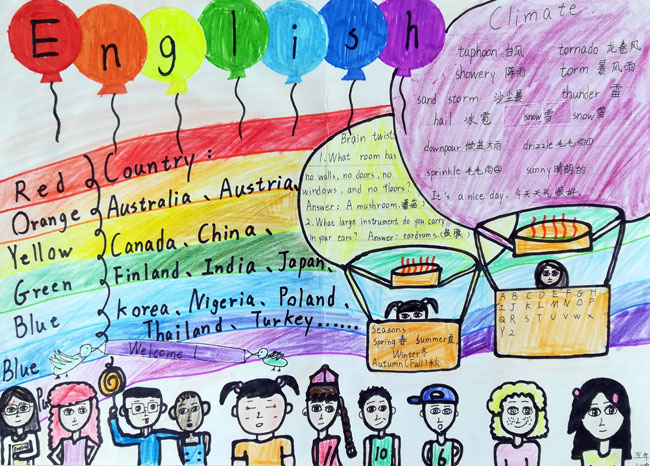 English
Climate
taphoon 台风
tornado 龙卷风
showery 阵雨
torm 暴风雨
sand storm 沙尘暴
thunder 雷
hail 冰雹
snow雪
snow雪
downpour 倾盆大雨
drizzle 毛毛雨①
sprinkle 毛毛雨②
sunny 晴朗的
It's a nice day. 今天天气很好.
Brain twist
1. What room has
no walls, no doors, no
windows, and no floors?
Answer: A mushroom.(蘑菇)
2. What large instrument do you carry
in your ears? Answer: eardrums.(鼓膜)
Red
Orange
Yellow
Green
Blue
Blue
Pu
Country:
Australia、Austria、
Canada、China、
Finland、India、Japan、
korea、Nigeria、Poland、
Thailand、Turkey……
Welcome!
Seasons
Spring春 Summer夏
Winter冬
Autumn(Fall)秋
A B C D E F G H
I J K L M N O P
Q R S T U V W X
Y Z
11
10
6